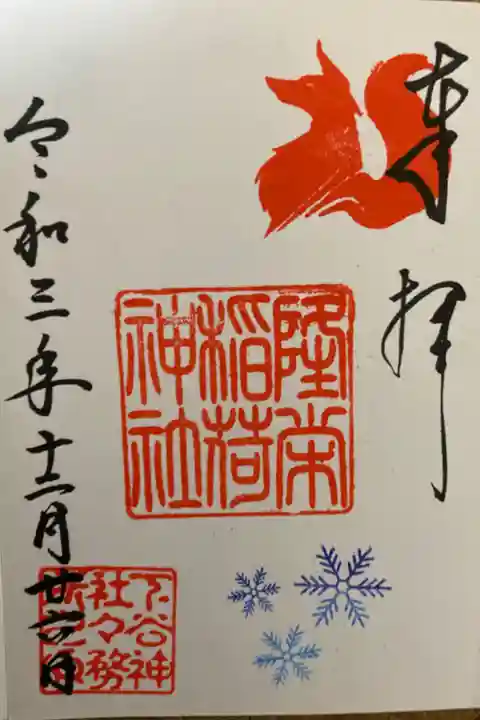 奉拝
隆栄
稲荷
神社
令和三年十二月廿六日
下谷神
社々務
所之印